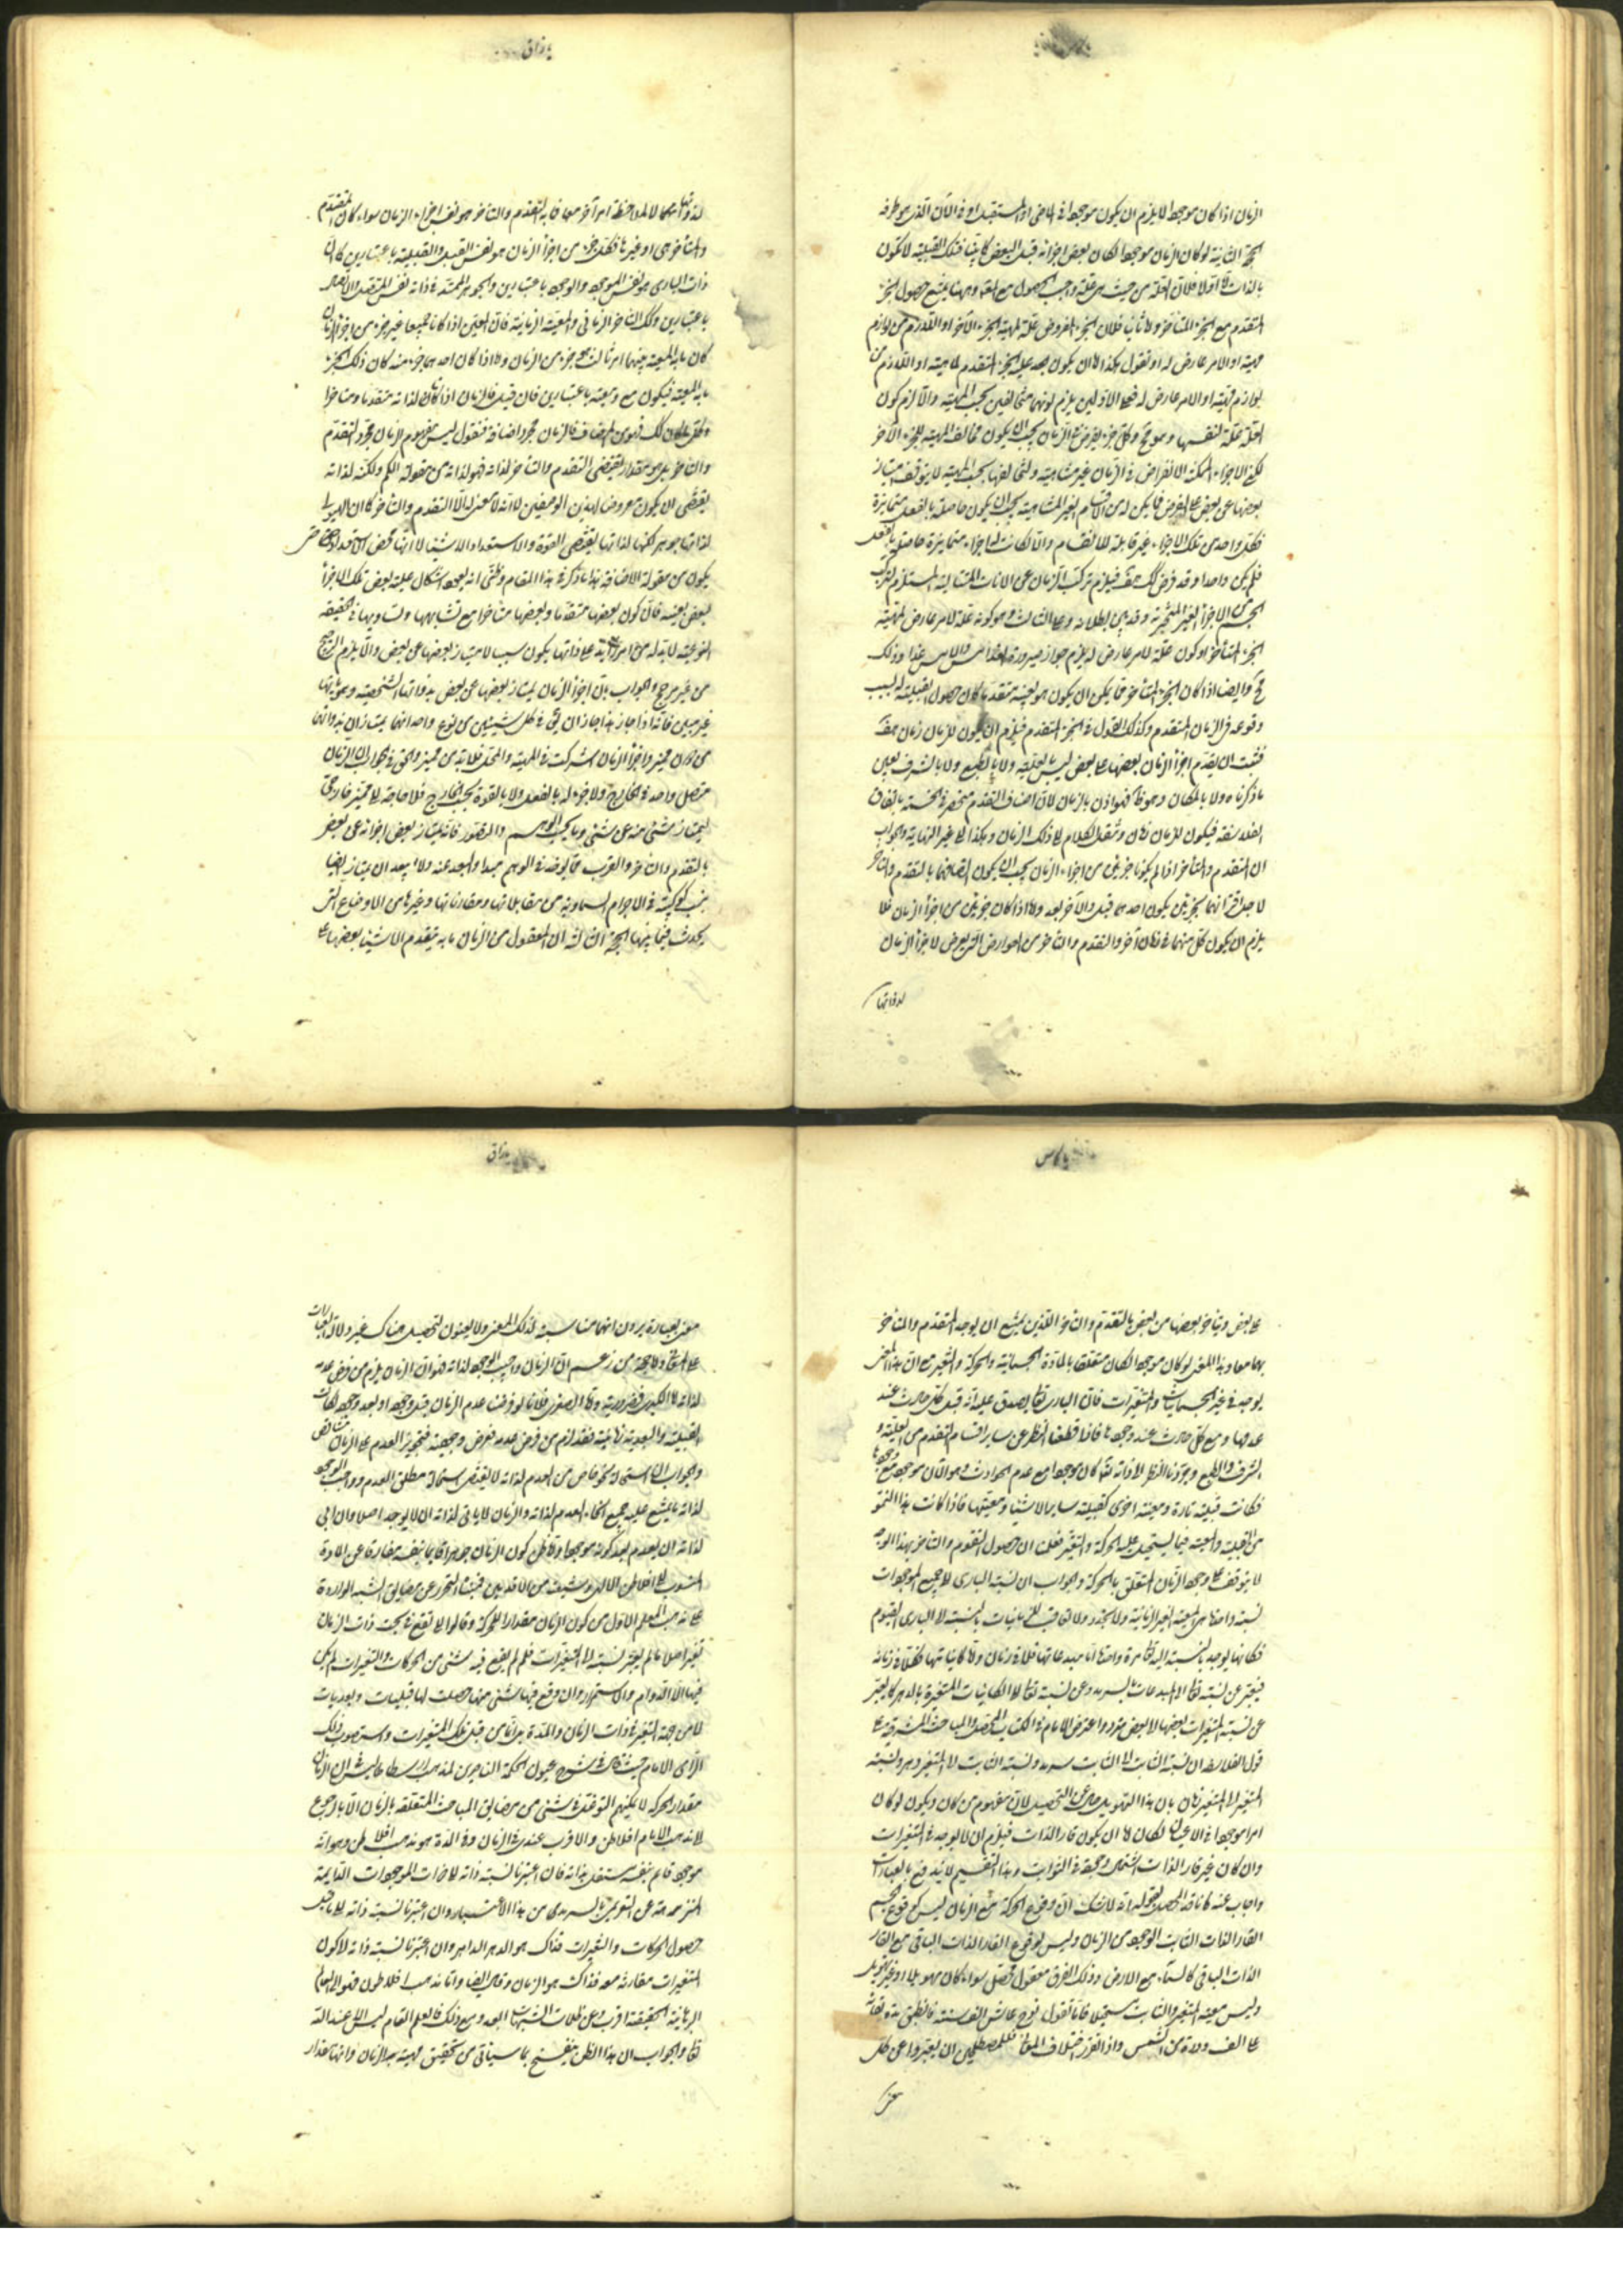 الزمان اذا كان موجودا لا يلزم ان يكون موجودا في الماضي او المستقبل او في الآن الذي هو طرفه
الحجة الثانية لو كان الزمان موجودا لكان بعض اجزائه قبل البعض فتلك القبلية لا تكون
المتقدم مع الجزء المتأخر وثانيا فلان الجزء المفروض علة لمهية الجزء الآخر او اللازم من لوازم
مهية او لامر عارض له او نقول
لوازم مهيته او لامر عارض له فعلى الاولين يلزم كونهما متخالفين بحسب المهية والا لزم كون
العلة علة لنفسها وكل جزء يفرض في الزمان يجب ان يكون مخالف المهية للجزء الآخر
لكن الاجزاء الممكنة الانفراض في الزمان غير متناهية
فكل واحد من تلك الاجزاء غير قابلة للانقسام والا لكانت له اجزاء متمايزة حاصلة بالفعل
فلم يكن واحدا وقد فرض كك هف فيلزم تركب الزمان عن الآنات المتتالية المستلزم لتركب
الجسم من الاجزاء الغير المتجزية وقد تبين بطلانه وعلى الثالث وهو كونه علة لامر عارض لمهية
الجزء المتأخر او كون علة لامر عارض له يلزم جواز صيرورة الغد امس والامس غدا وذلك
مح وايضا اذا كان الجزء المتأخر مما يمكن ان يكون هو بعينه متقدما كان حصول القبلية له لسبب
وقوعه في الزمان المتقدم وكذلك القول في الجزء المتقدم فيلزم ان يكون للزمان زمان هف
فثبت ان تقدم اجزاء الزمان بعضها على بعض ليس بالعلية ولا بالطبع ولا بالشرف بعين
ما ذكرناه ولا بالمكان وهو ظ فهو اذن بالزمان لان اصناف التقدم منحصر في الخمسة باتفاق
الفلاسفة فيكون للزمان زمان وننقل الكلام الى ذلك الزمان وهكذا الى غير النهاية والجواب
ان المتقدم والمتأخر اذا لم يكونا جزئين من اجزاء الزمان يجب ان يكون اتصافهما بالتقدم والتأخر
لاجل اقترانهما بجزئين يكون احدهما قبل والآخر بعد واما اذا كان جزئين من اجزاء الزمان فلا
يلزم ان يكون كل منهما في زمان آخر والتقدم والتأخر من العوارض التي يعرض لاجزاء الزمان
لذواتها
لذواتها لا لملاحظة امر آخر معها فما به التقدم والتأخر هو نفس اجزاء الزمان سواء كان المتقدم
والمتأخر هي او غيرها فكل جزء من اجزاء الزمان هو نفس القبل والقبلية باعتبارين كما ان
ذات الباري هو نفس الموجود والوجود باعتبارين والجوهر الممتد في ذاته نفس المتصل والاتصال
باعتبارين وكذلك التأخر الزماني والمعية الزمانية فان المعين اذا كانا جميعا غير جزء من اجزاء الزمان
كان ما به المعية بينهما امر ثالث هو جزء من الزمان واما اذا كان احدهما جزء منه كان ذلك الجزء
ما به المعية فيكون مع ومعية باعتبارين فان قيل فالزمان اذا كان لذاته متقدما ومتأخرا
فهو من المضاف فالزمان مجرد اضافة فنقول ليس مفهوم الزمان مجرد التقدم
والتأخر بل هو مقدار يقتضي التقدم والتأخر لذاته فهو لذاته من مقولة الكم ولكنه لذاته
يقتضي ان يكون معروضا لهذين الوصفين لا انه لا معنى له الا التقدم والتأخر كما ان الهيولى
لذاتها جوهر لكنها لذاتها يقتضي القوة والاستعداد للاشياء لا انها محض الاستعداد
يكون من مقولة الاضافة هذا ما ذكر في هذا المقام وظني انه بعد اشكال علية بعض تلك الاجزاء
لبعض بعينه فان كون بعضها متقدما وبعضها متأخرا مع تشابهها وتساويها في الحقيقة
النوعية لا بد له من امر زايد على ذاتها يكون سببا لامتياز بعضها عن بعض والا يلزم الترجيح
من غير مرجح والجواب بان اجزاء الزمان يمتاز بعضها عن بعض بذواتها الشخصية وهوياتها
غير مبين فانه اذا جاز هذا جاز ان يق في كل شيئين من نوع واحد انهما يمتازان بذواتهما
من دون مميز واجزاء الزمان اشتركت في المهية والمحل فلا بد من مميز والحق في الجواب ان الزمان
متصل واحد في الخارج ولا جزء له بالفعل ولا بالقوة بحسب الخارج فلا حاجة الى مميز خارجي
ليمتاز شئ منه عن شئ واما بحسب الوهم والتصور فانه يمتاز بعض اجزائه عن بعض
بالتقدم والتأخر والقرب مما يوضع في الوهم مبدأ والبعد عنه ولا يبعد ان يمتاز ايضا
بنسب كوكبية في الاجرام السماوية من مقابلاتها ومقارناتها وغيرها من الاوضاع التي
يحدث فيما بينها الحجة الثالثة ان المعقول من الزمان ما به يتقدم الاشياء بعضها على
على بعض ويتأخر بعضها من بعض بالتقدم والتأخر اللذين يمتنع ان يوجد المتقدم والمتأخر
بهما معا وهذا المعنى لو كان موجودا لكان متعلقا بالمادة الجسمانية والحركة والتغير مع ان هذا المعنى
يوجد في غير الجسمانيات والمتغيرات فان الباري تعالى يصدق عليه انه قبل كل حادث عند
عدمها ومع كل حادث عند وجودها فاذا قطعنا النظر عن ساير اقسام التقدم من العلية و
الشرف والطبع وجردنا النظر الى ذاته تعالى كان موجودا مع عدم الحوادث وهو الآن موجود مع وجودها
فكانت قبلية تارة ومعية اخرى كقبلية ساير الاشياء ومعيتها فاذا كانت هذا النحو
من القبلية والمعية فيما يستحيل عليه الحركة والتغير فعلم ان حصول التقدم والتأخر بهذا الوجه
لا يتوقف على وجود الزمان المتعلق بالحركة والجواب ان نسبة الباري الى جميع الموجودات
نسبة واحدة هي المعية الغير الزمانية ولا تجدد ولا تعاقب للزمانيات بالنسبة الى الباري القيوم
فكلها يوجد بالنسبة اليه تعالى مرة واحدة اما مبدعاتها فلا في زمان واما كايناتها فكل في زمانه
فيعبر عن نسبته تعالى الى المبدعات بالسرمد وعن نسبته تعالى الى الكاينات المتغيرة بالدهر كما يعبر
عن نسبة المتغيرات بعضها الى بعض واعترض الامام في الكتاب الملخص والمباحث المشرقية على
قول الفلاسفة ان نسبة الثابت الى الثابت سرمد ونسبة الثابت الى المتغير دهر ونسبة
المتغير الى المتغير زمان بان هذا التهويل خال عن التحصيل لان مفهوم من كان ويكون لو كان
امرا موجودا في الاعيان لكان اما ان يكون قار الذات فيلزم ان لا يوجد في المتغيرات
وان كان غير قار الذات استحال وجوده في الثوابت وهذا التقسيم لا يندفع بالعبارات
واجاب عنه ناقد المحصل بقوله انه لا شك ان وقوع الحركة مع الزمان ليس كوقوع الجسم
القار الذات الثابت الوجود مع الزمان وليس كوقوع القار الذات الباقي مع القار
الذات الباقي كالسماء مع الارض وذلك الفرق معقول محصل سواء كان مهولا او غير تهويل
وليس معية المتغير والثابت مستحيلا فانا نقول نوح عاش الف سنة فانطبق مدة بقائه
على الف دورة من الشمس واذا تقرر اختلاف المعاني فللمصطلحين ان يعبروا عن كل
معنى
معنى بعبارة يرون انها مناسبة لذلك المعنى ولا يعنون بتحصيل هناك غير دلالة العبارات
على المعاني واما حجة من زعم ان الزمان واجب الوجود لذاته فهو ان الزمان يلزم من فرض عدمه
لذاته اما الكبرى فضرورية واما الصغرى فلانا لو فرضنا عدم الزمان قبل وجوده او بعد وجوده لكانت
القبلية والبعدية زمانية فقد لزم من فرض عدمه فرض وجوده فتجويز العدم على الزمان متناقض
والجواب ان استحالة نحو خاص من العدم لذاته لا يقتضي استحالة مطلق العدم وواجب الوجود
لذاته ما يمتنع عليه جميع انحاء العدم لذاته والزمان لا يأبى لذاته ان لا يوجد اصلا وان ابى
لذاته ان يعدم بعد كونه موجودا واما ظن كون الزمان جوهرا قايما بنفسه مفارقا عن المادة
المنسوب الى افلاطن الالهي وشيعته من الاقدمين فمنشأه التحرز عن مضايق الشبه الواردة
على مذهب المعلم الاول من كون الزمان مقدارا للحركة وقالوا لا يقع في بحت ذات الزمان
تغير اصلا ما لم يعتبر نسبته الى المتغيرات فلم لم يقع فيه شئ من الحركات والتغيرات لم يكن
فيها الا الدوام والاستمرار وان وقع فيها شئ منها حصلت لها قبليات وبعديات
لا من جهة التغير في ذات الزمان والمدة بل من قبل تلك المتغيرات واستصوب ذلك
الرأي الامام حيث قال في شرح عيون الحكمة الناصرين لمذهب ارسطاطاليس في ان الزمان
مقدار الحركة لا يمكنهم التوغل في شئ من مضايق المباحث المتعلقة بالزمان الا بالرجوع
الى مذهب الامام افلاطن والاقرب عندي في الزمان وفي المدة هو مذهب افلاطن وهو انه
موجود قائم بنفسه مستقل بذاته فان اعتبرنا نسبة ذاته الى ذوات الموجودات الدايمة
المنزهة عن التغير سمي بالسرمد من هذا الاعتبار وان اعتبرنا نسبة ذاته الى ما قبل
حصول الحركات والتغيرات فذاك هو الدهر الداهر وان اعتبرنا نسبة ذاته الى كون
المتغيرات مقارنة معه فذاك هو الزمان وقال ايضا واما مذهب افلاطون فهو الى العلوم
البرهانية الحقيقية اقرب وعن ظلمات الشبهات ابعد ومع ذلك فالعلم التام ليس الا عند الله
تعالى والجواب ان هذا الظن ينفسخ بما سيأتي من تحقيق مهية الزمان وانها مقدار